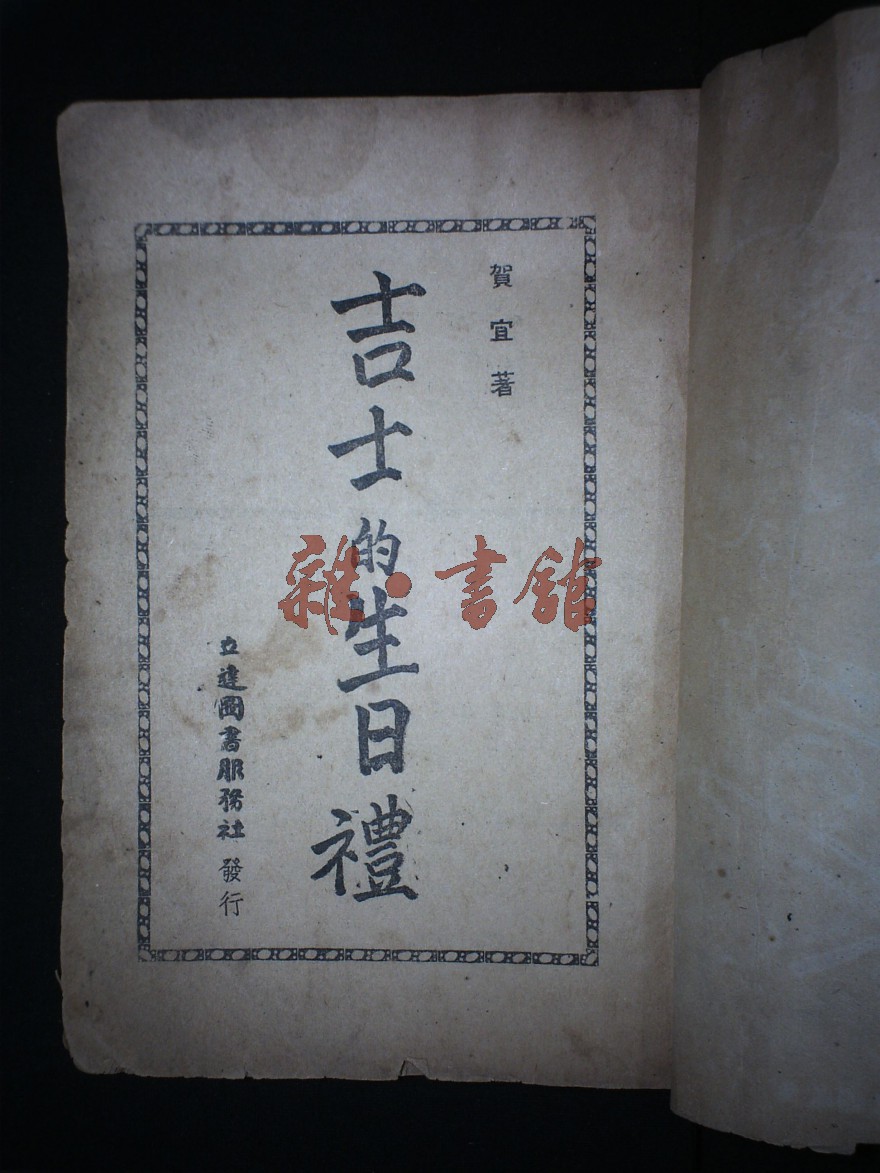 賀宜著
吉士的生日禮
立達圖書服務社 發行
雜·書館